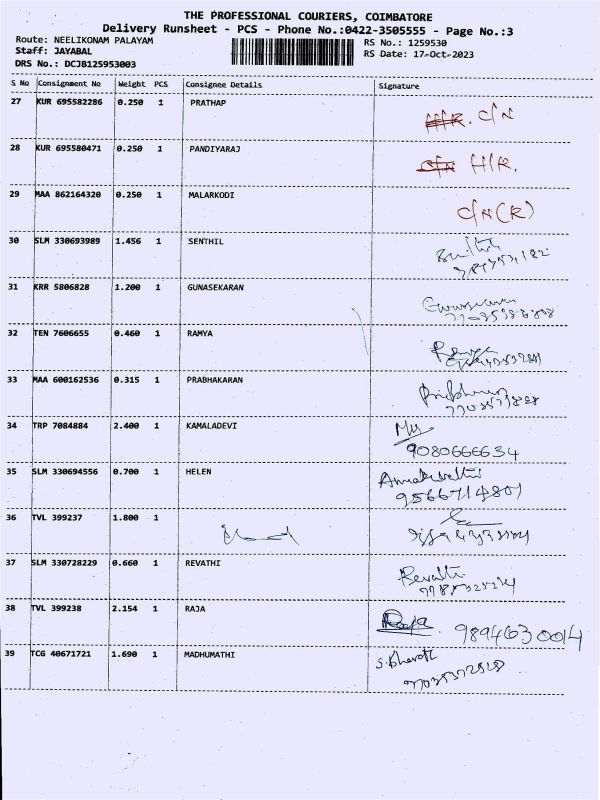 THE PROFESSIONAL COURIERS, COIMBATORE
Delivery Runsheet - PCS - Phone No.:0422-3505555 - Page No.:3
Route: NEELIKONAM PALAYAM RS No.: 1259530
Staff: JAYABAL RS Date: 17-Oct-2023
DRS No.: DCJB125953003
S No Consignment No Weight PCS Consignee Details Signature
27 KUR 695582286 0.250 1 PRATHAP C/N
28 KUR 695580471 0.250 1 PANDIYARAJ H/R.
29 MAA 862164320 0.250 1 MALARKODI C/N(R)
30 SLM 330693989 1.456 1 SENTHIL
31 KRR 5806828 1.200 1 GUNASEKARAN
32 TEN 7606655 0.460 1 RAMYA Ramya
33 MAA 600162536 0.315 1 PRABHAKARAN
34 TRP 7084884 2.400 1 KAMALADEVI
9080666634
35 SLM 330694556 0.700 1 HELEN
9566714801
36 TVL 399237 1.800 1
37 SLM 330728229 0.660 1 REVATHI Revathi
38 TVL 399238 2.154 1 RAJA Raja. 9894630014
39 TCG 40671721 1.690 1 MADHUMATHI S.Bharathi